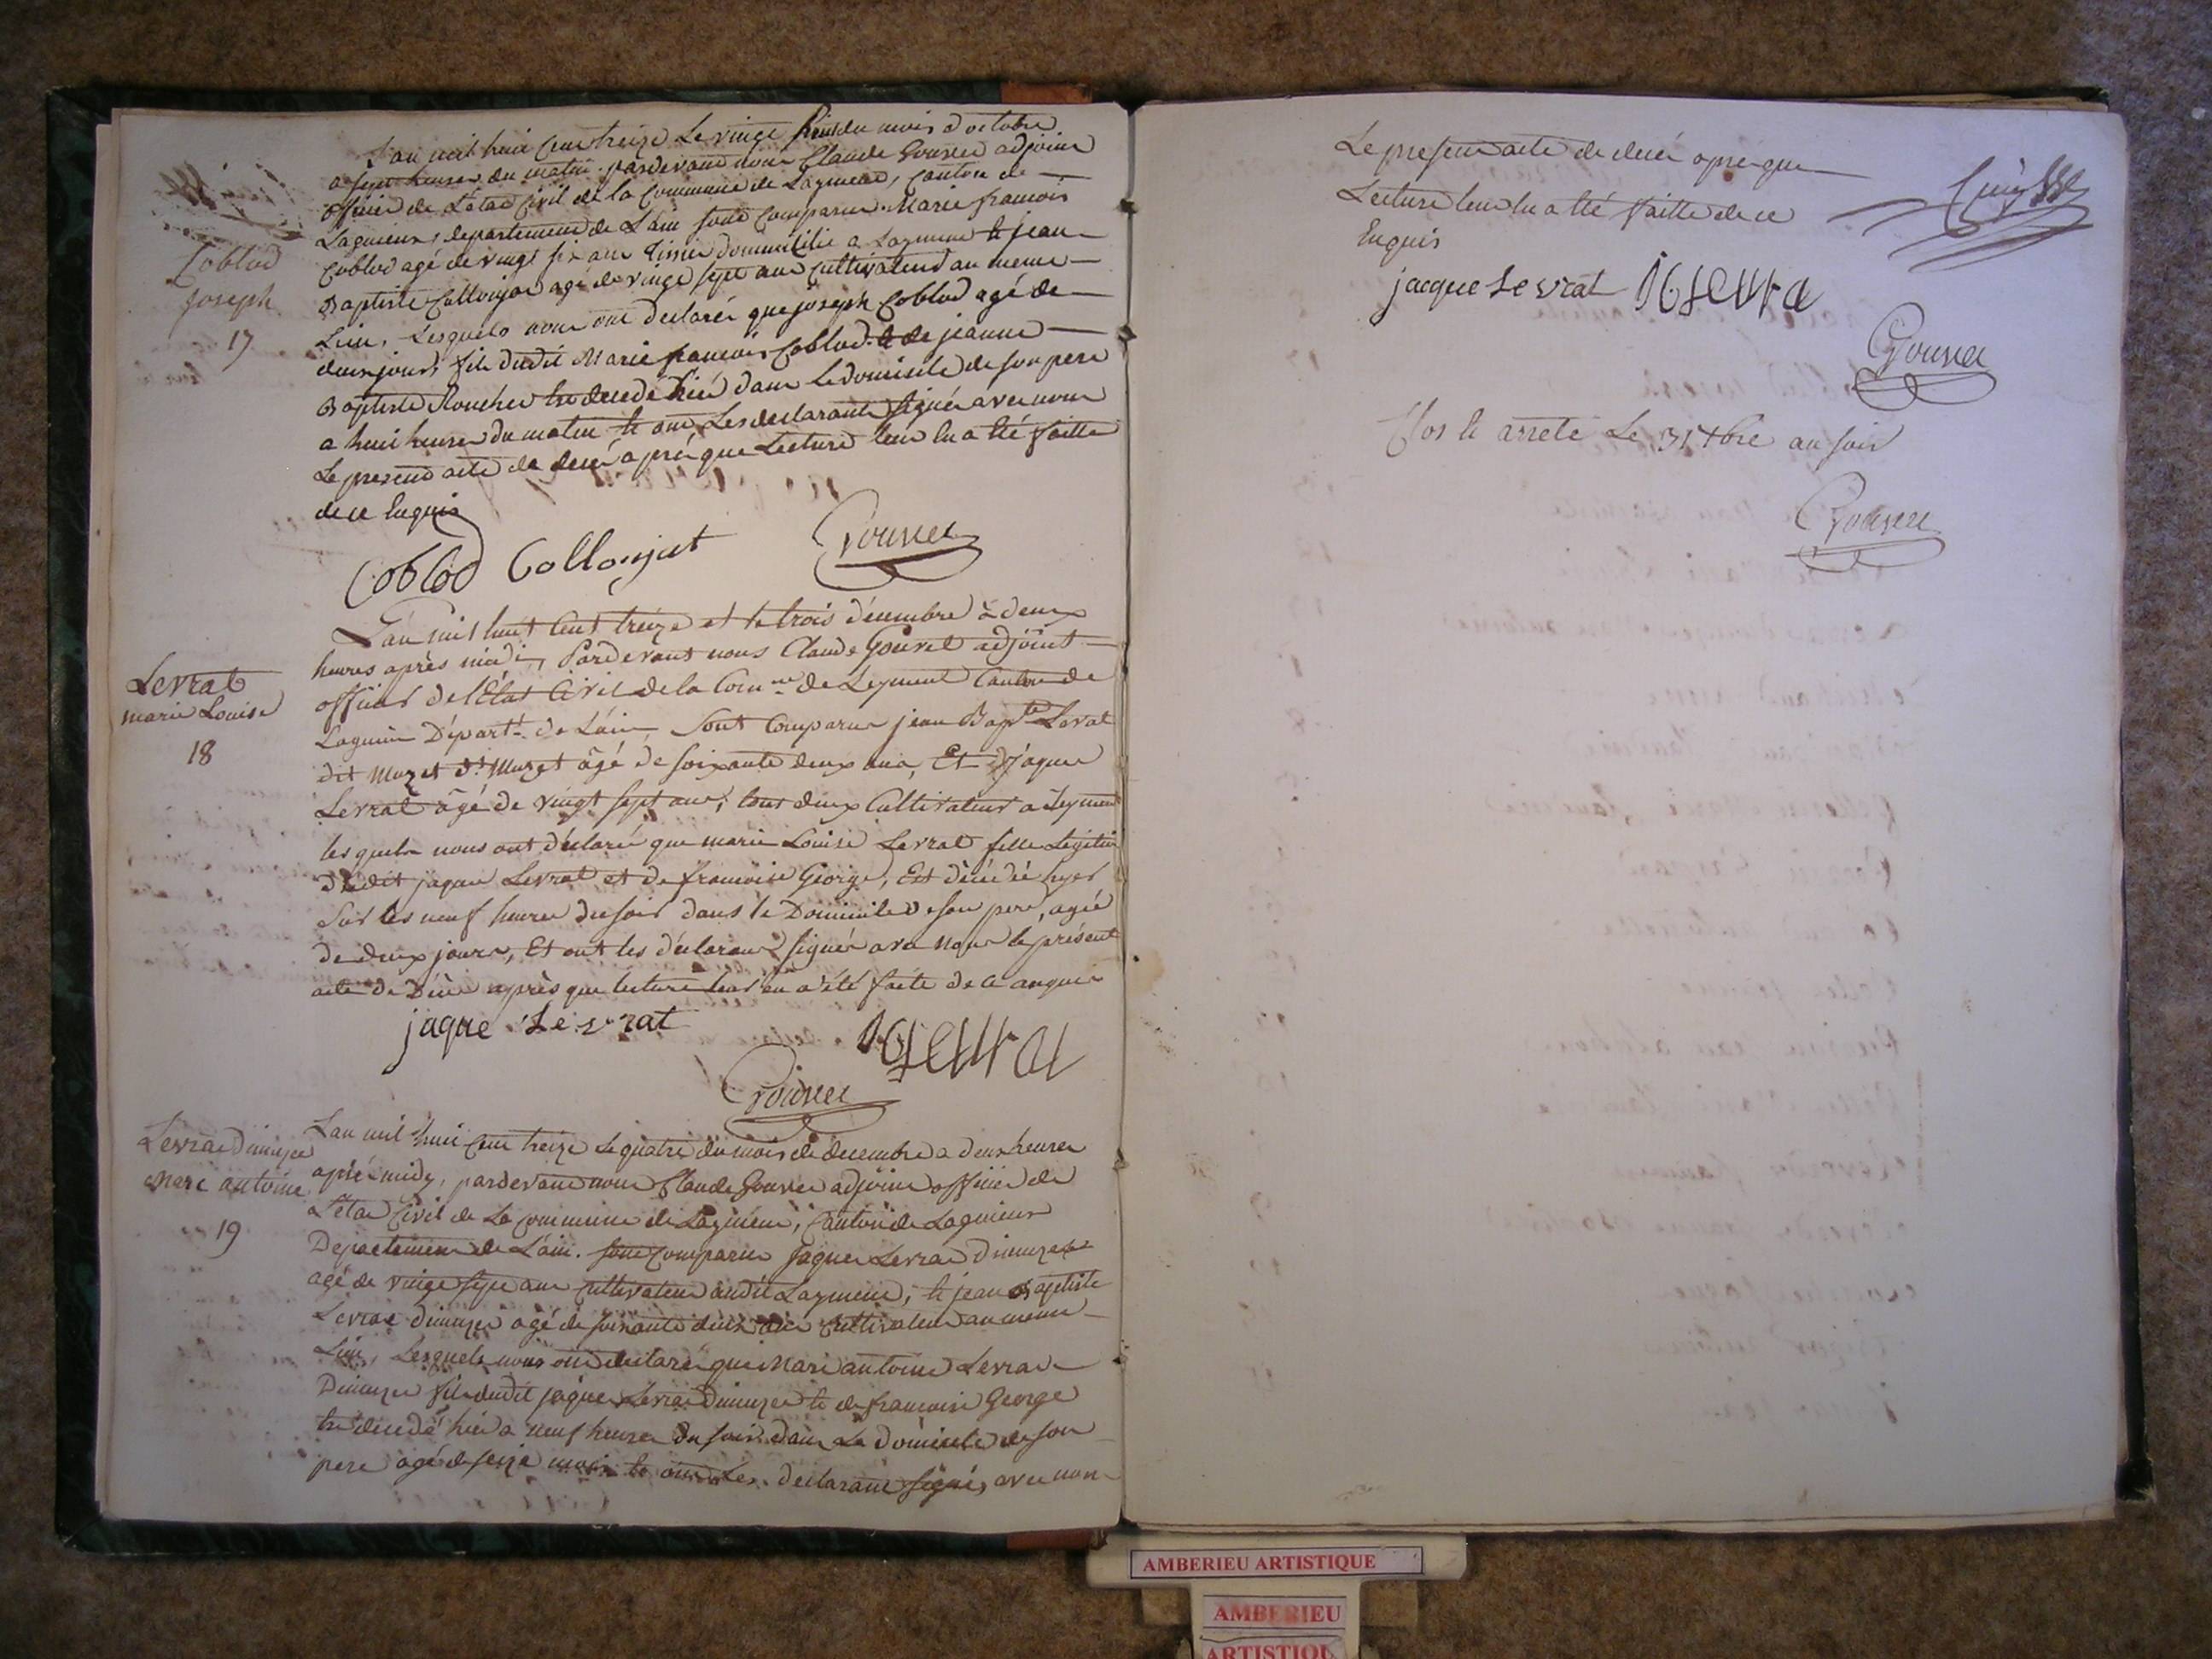 Coblod
joseph
17
L'an mil huit cent treize Le vingt huit du mois d'octobre
a sept heures du matin pardevant nous Claude Gouvet adjoint
officier de L'état Civil de la Commune de Layment, canton de
Lagnieux, departement de L'ain sont Comparus Marie francois
Coblod agé de vingt six ans Tissier domicilié a Layment et jean
Baptiste Collonjat agé de vingt sept ans Cultivateur au meme
Lieu, Lesquels nous ont declarés que joseph Coblod agé de
deux jours, fils dudit Marie francois Coblod et de jeanne
Baptiste Roucher est decedé hier dans le domicile de son pere
a huit heures du matin et ont Les declarants signés avec nous
Le present acte de decés après que Lecture leur en a été faitte
de ce Enquis
Coblod Collonjat Gouvet
Levrat
marie Louise
18
L'an mil huit Cent treize et le trois décembre à deux
heures après midi, Pardevant nous Claude Gouvet adjoint
officier de l'Etat Civil de la Comune de Leyment Canton de
Lagnieu Départt de L'ain, Sont Comparus jean Bapte Levrat
dit Muzet dt Muzet âgé de soixante deux ans, Et jaque
Levrat âgé de vingt sept ans, tous deux Cultivateurs a Leyment
lesquels nous ont déclaré que marie Louise Levrat fille Légitime
dudit jaque Levrat et de francoise George, Est décédé hyer
Sur les neuf heures du soir dans le Domicile de son pere, agée
de deux jours, Et ont les déclarans signés avec Nous le présent
acte de Décès après que lecture leur en a été faite de ce enquis
jaque Le vrat
Gouvet
Levrat Dimuzet
Marc antoine
19
L'an mil huit Cent treize le quatre du mois de decembre a deux heures
aprés midy, pardevant nous Claude Gouvet adjoint officier de
L'état Civil de La Commune de Layment, Canton de Lagnieux
Departement de L'ain. sont Comparus jaque Levrat Dimuzet
agé de vingt sept ans Cultivateur audit Layment, et jean Baptiste
Levrat Dimuzet agé de soixante deux ans Cultivateur au meme
Lieu, Lesquels nous ont declaré que Marc antoine Levrat
Dimuzet fils dudit jaque Levrat Dimuzet et de francoise George
est decedé hier a neuf heures du soir dans Le domicile de son
pere agé de seize mois et ont Les declarant signés avec nous
Le present acte de decés après que
Lecture leur en a été faitte de ce
Enquis
jacque Le vrat
Gouvet
Clos et arreté Le 31 Xbre au soir
Gouvet
AMBERIEU ARTISTIQUE
AMBERIEU
ARTISTIQU